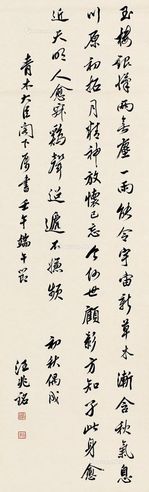 玉樓銀漢兩無塵一雨能令宇宙新草木漸含秋氣息
川原初拓月精神放懷已忘今何世顧影方知此身愈
近天明人愈雞聲迢遞不嫌頻 初秋偶成
青木大臣閣下屬書壬午端午節 汪兆銘